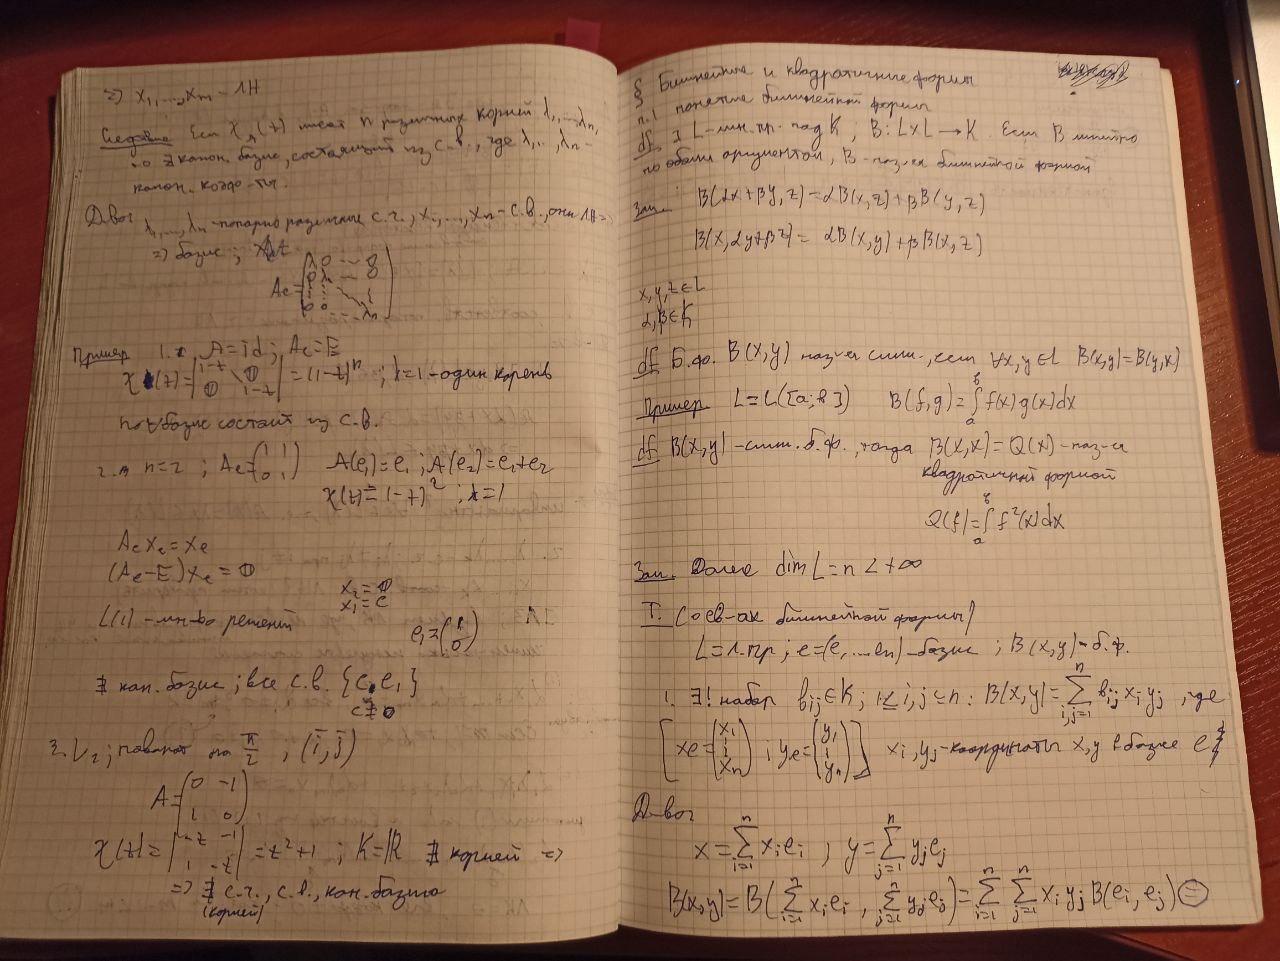 => x₁, ..., xₘ - ЛН
Следствие Если χ_A(t) имеет n различных корней λ₁, ..., λₙ,
то ∃ канон. базис, состоящий из с.в., где λ₁, .., λₙ -
канон. коэф-ты.
Д-во:
λ₁, ..., λₙ - попарно различные с.ч., x₁, ..., xₙ - с.в., они ЛН =>
=> базис;
Aₑ = (λ 0 ... 0 0 λ ... 0 ⋮ ⋮ ⋱ ⋮ 0 0 ... λₙ)
Пример 1. A = id; Aₑ = E
χ(t) = |1-t 0 0 1-t| = (1-t)ⁿ; λ = 1 - один корень
но ∀ базис состоит из с.в.
2. n = 2; Aₑ = (1 1 0 1) A(e₁) = e₁; A(e₂) = e₁+e₂
χ(t) = (1-t)²; λ = 1
Aₑxₑ = xₑ
(Aₑ-E)xₑ = 0
x₂ = 0
x₁ = c
L(1) - мн-во решений e₁ = (1 0)
∄ кан. базис; все с.в. {c·e₁}
c ≠ 0
3. V₂; поворот на π/2, (i̅, j̅)
A = (0 -1 1 0)
χ(t) = |-t -1 1 -t| = t²+1; K = ℝ ∄ корней =>
=> ∄ с.ч., с.в., кан. базиса
(корней)
§ Билинейные и квадратичные формы
п.1 понятие билинейной формы
df ∃ L-лин.пр. над K; B: L×L → K. Если B линейно
по обоим аргументам, B - наз-ся билинейной формой
Зам.: B(αx+βy, z) = αB(x,z)+βB(y,z)
B(x, αy+βz) = αB(x,y)+βB(x,z)
x,y,z ∈ L
α,β ∈ K
df Б.ф. B(x,y) наз-ся симм., если ∀x,y ∈ L B(x,y) = B(y,x)
Пример L = L([a;b]) B(f,g) = ∫ₐᵇ f(x)g(x)dx
df B(x,y) - симм. б.ф., тогда B(x,x) = Q(x) - наз-ся
квадратичной формой
Q(f) = ∫ₐᵇ f²(x)dx
Зам. Далее dim L = n < +∞
T. (о св-ах билинейной формы)
L = л.пр; e = (e, ... eₙ) - базис; B(x,y) - б.ф.
1. ∃! набор bᵢⱼ ∈ K; 1 ≤ i,j ≤ n: B(x,y) = ∑ⁿᵢ,ⱼ₌₁ bᵢⱼ xᵢ yⱼ, где
[xₑ = (x₁ ⋮ xₙ); yₑ = (y₁ ⋮ yₙ)] xᵢ, yⱼ - координаты x,y в базисе e
Д-во:
x = ∑ⁿᵢ₌₁ xᵢeᵢ, y = ∑ⁿⱼ₌₁ yⱼeⱼ
B(x,y) = B(∑ⁿᵢ₌₁ xᵢeᵢ, ∑ⁿⱼ₌₁ yⱼeⱼ) = ∑ⁿᵢ₌₁ ∑ⁿⱼ₌₁ xᵢyⱼB(eᵢ, eⱼ) =